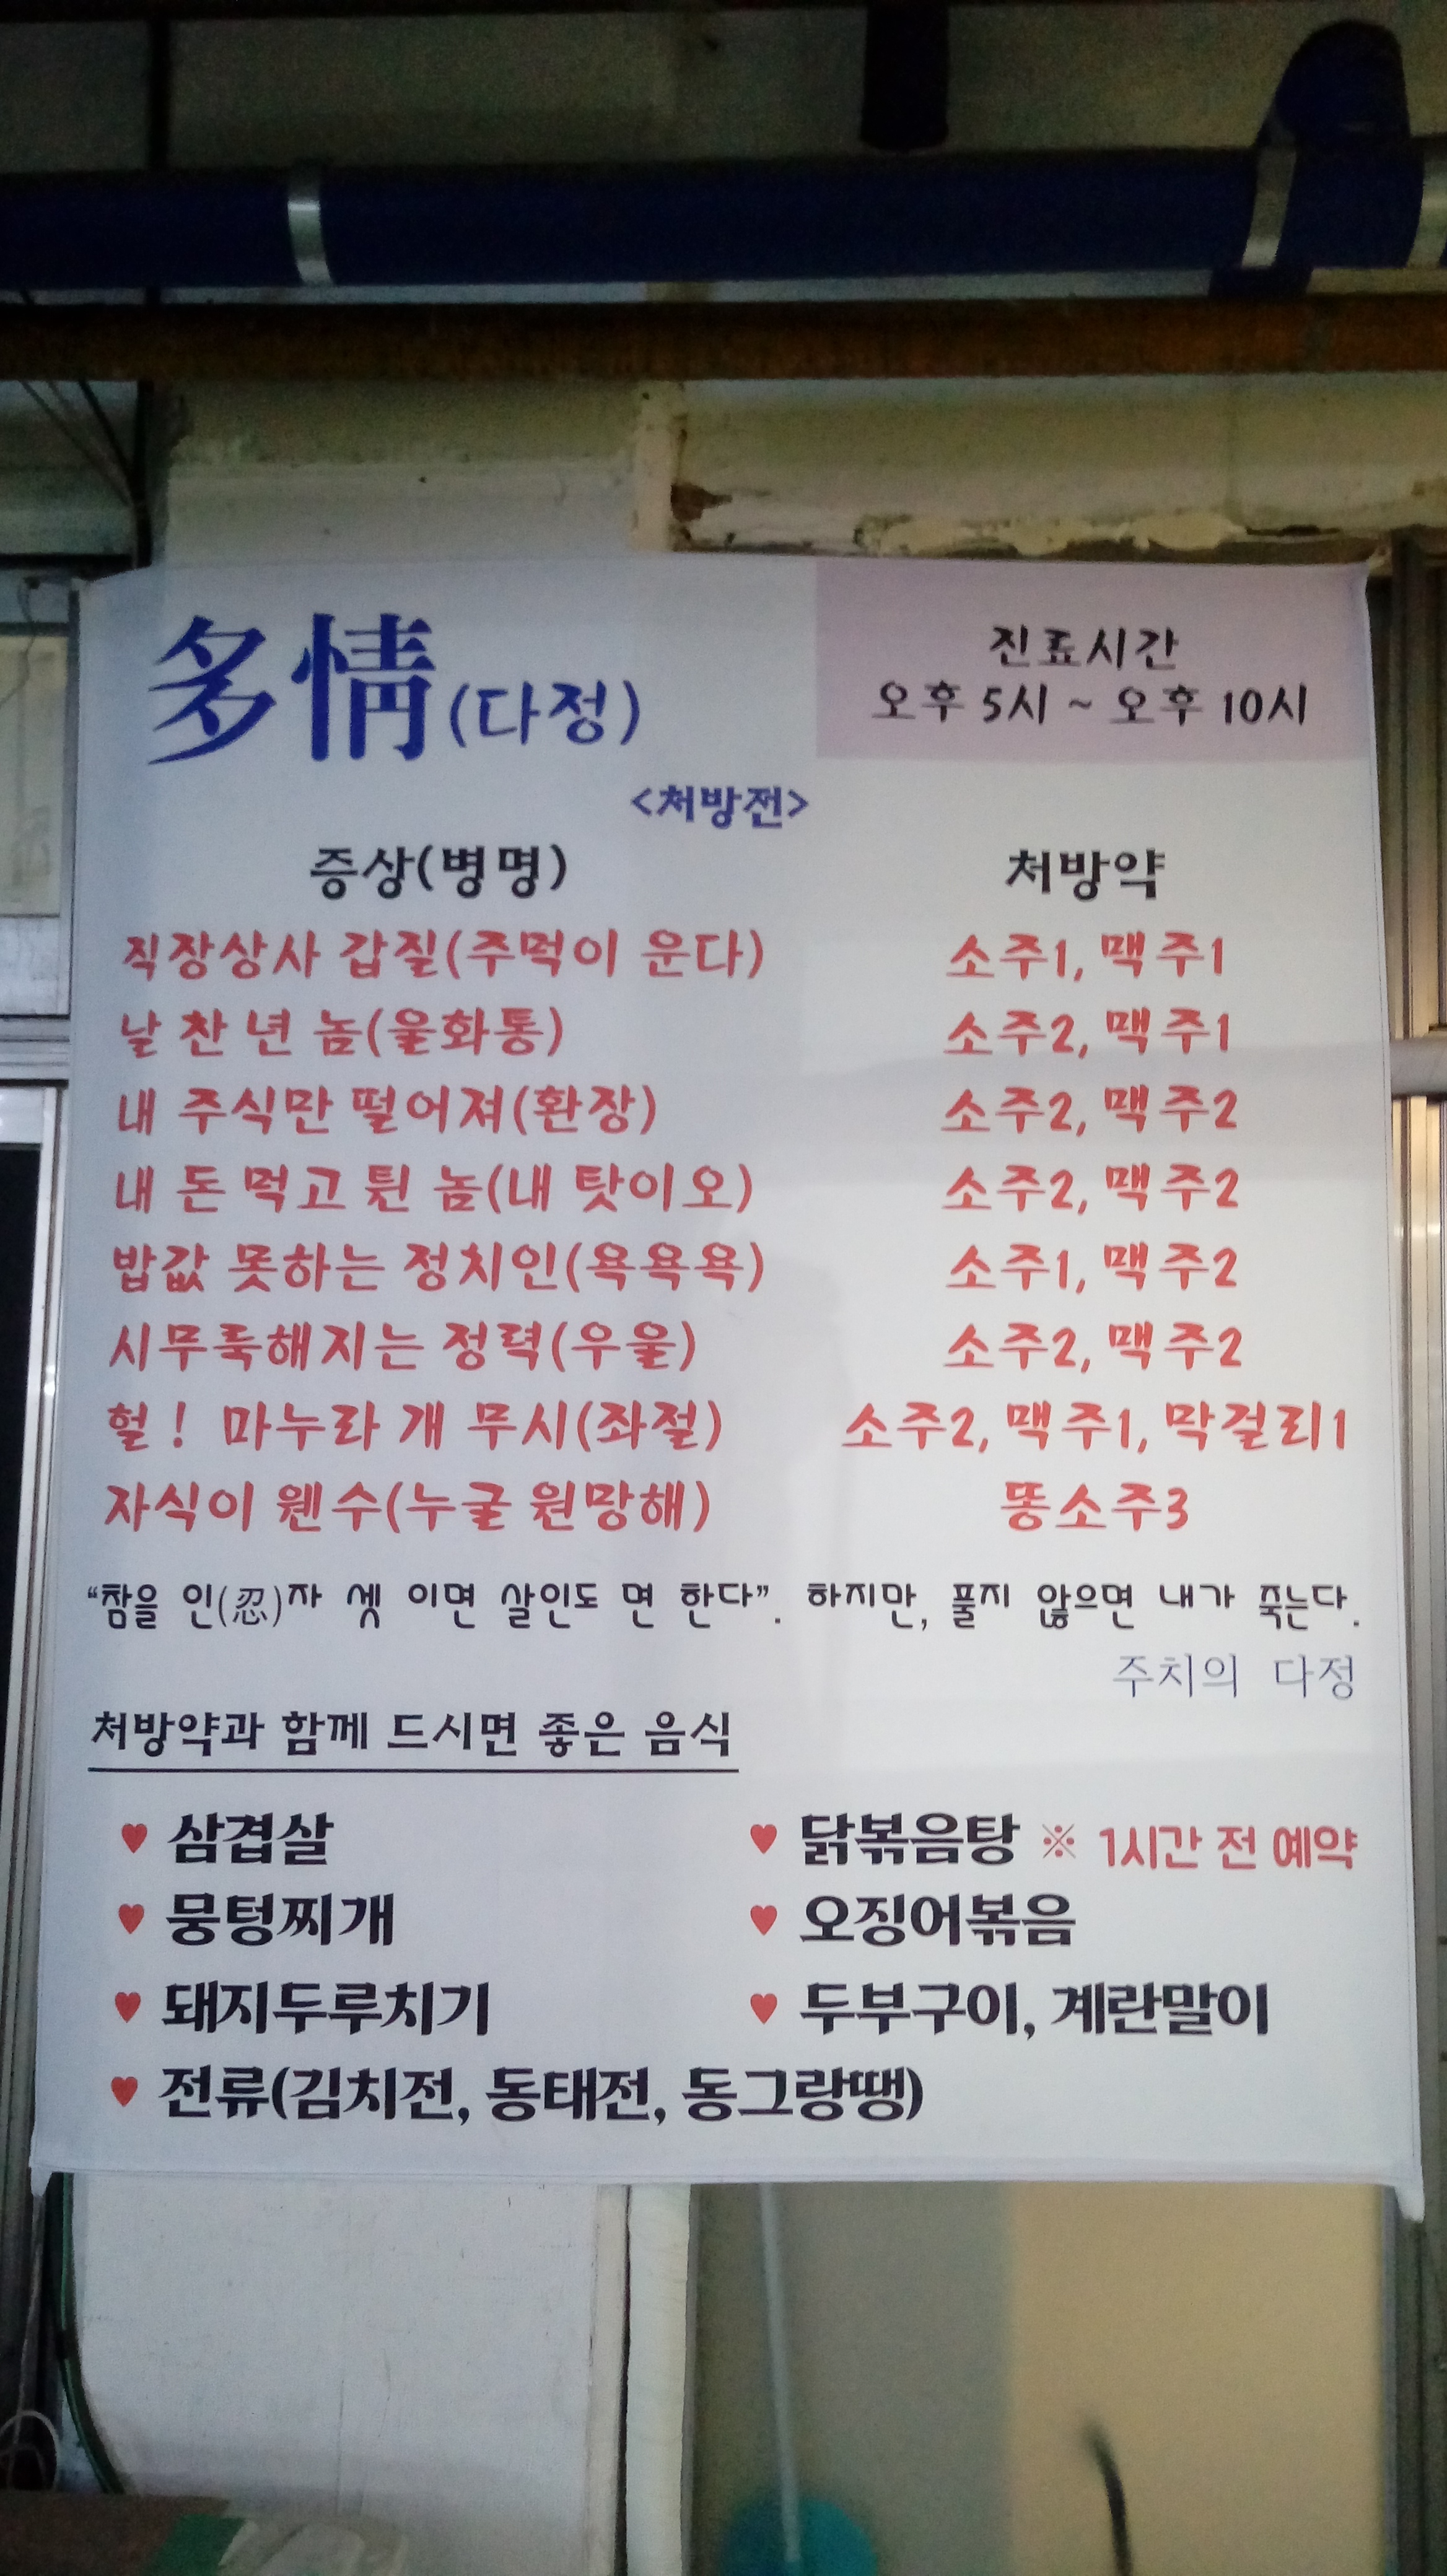 多情(다정)
진료시간
오후 5시 ~ 오후 10시
<처방전>
증상(병명) 처방약
직장상사 갑질(주먹이 운다) 소주1, 맥주1
날 찬 년 놈(울화통) 소주2, 맥주1
내 주식만 떨어져(환장) 소주2, 맥주2
내 돈 먹고 튄 놈(내 탓이오) 소주2, 맥주2
밥값 못하는 정치인(욕욕욕) 소주1, 맥주2
시무룩해지는 정력(우울) 소주2, 맥주2
헐! 마누라 개 무시(좌절) 소주2, 맥주1, 막걸리1
자식이 웬수(누굴 원망해) 똥소주3
“참을 인(忍)자 셋 이면 살인도 면 한다”. 하지만, 풀지 않으면 내가 죽는다.
주치의 다정
처방약과 함께 드시면 좋은 음식
♥ 삼겹살 ♥ 닭볶음탕 ※ 1시간 전 예약
♥ 뭉텅찌개 ♥ 오징어볶음
♥ 돼지두루치기 ♥ 두부구이, 계란말이
♥ 전류(김치전, 동태전, 동그랑땡)